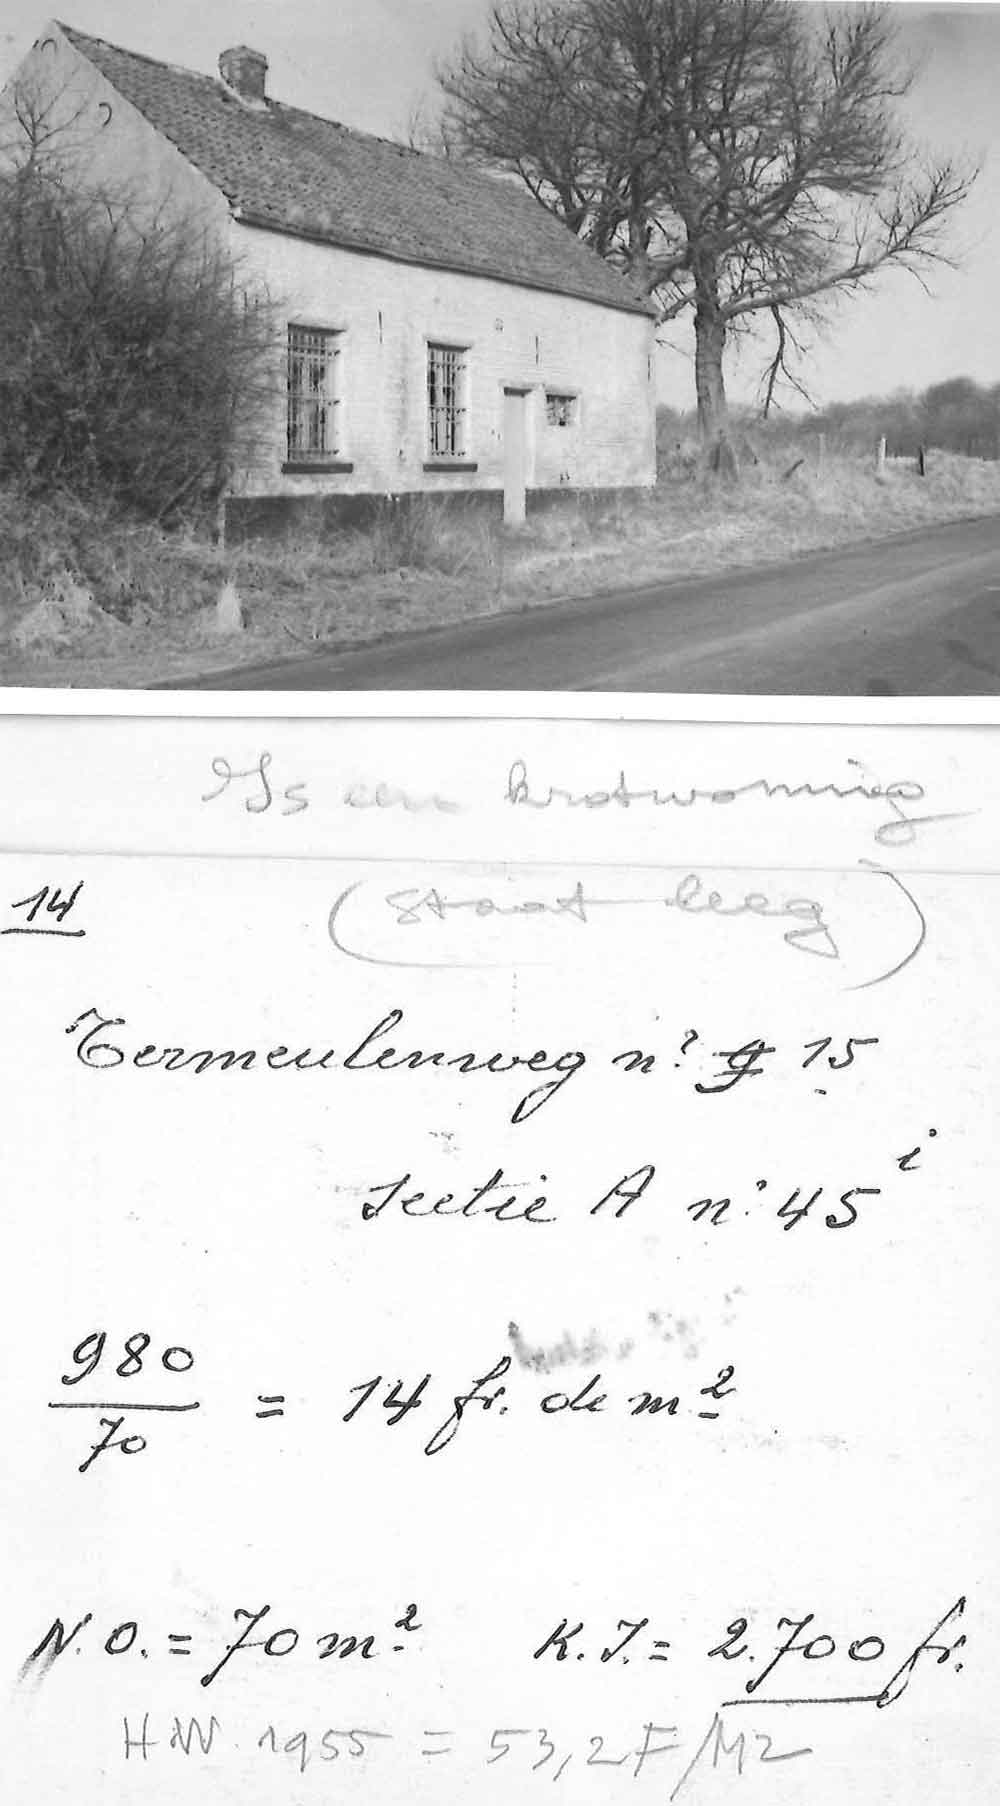 Is een krotwoning
14
(staat leeg)
Termeulenweg n° 9 15
sectie A n° 45 i
980
70
= 14 fr. de m²
N.O. = 70 m² K.I. = 2.700 fr.
HW. 1955 = 53,2 F/M2